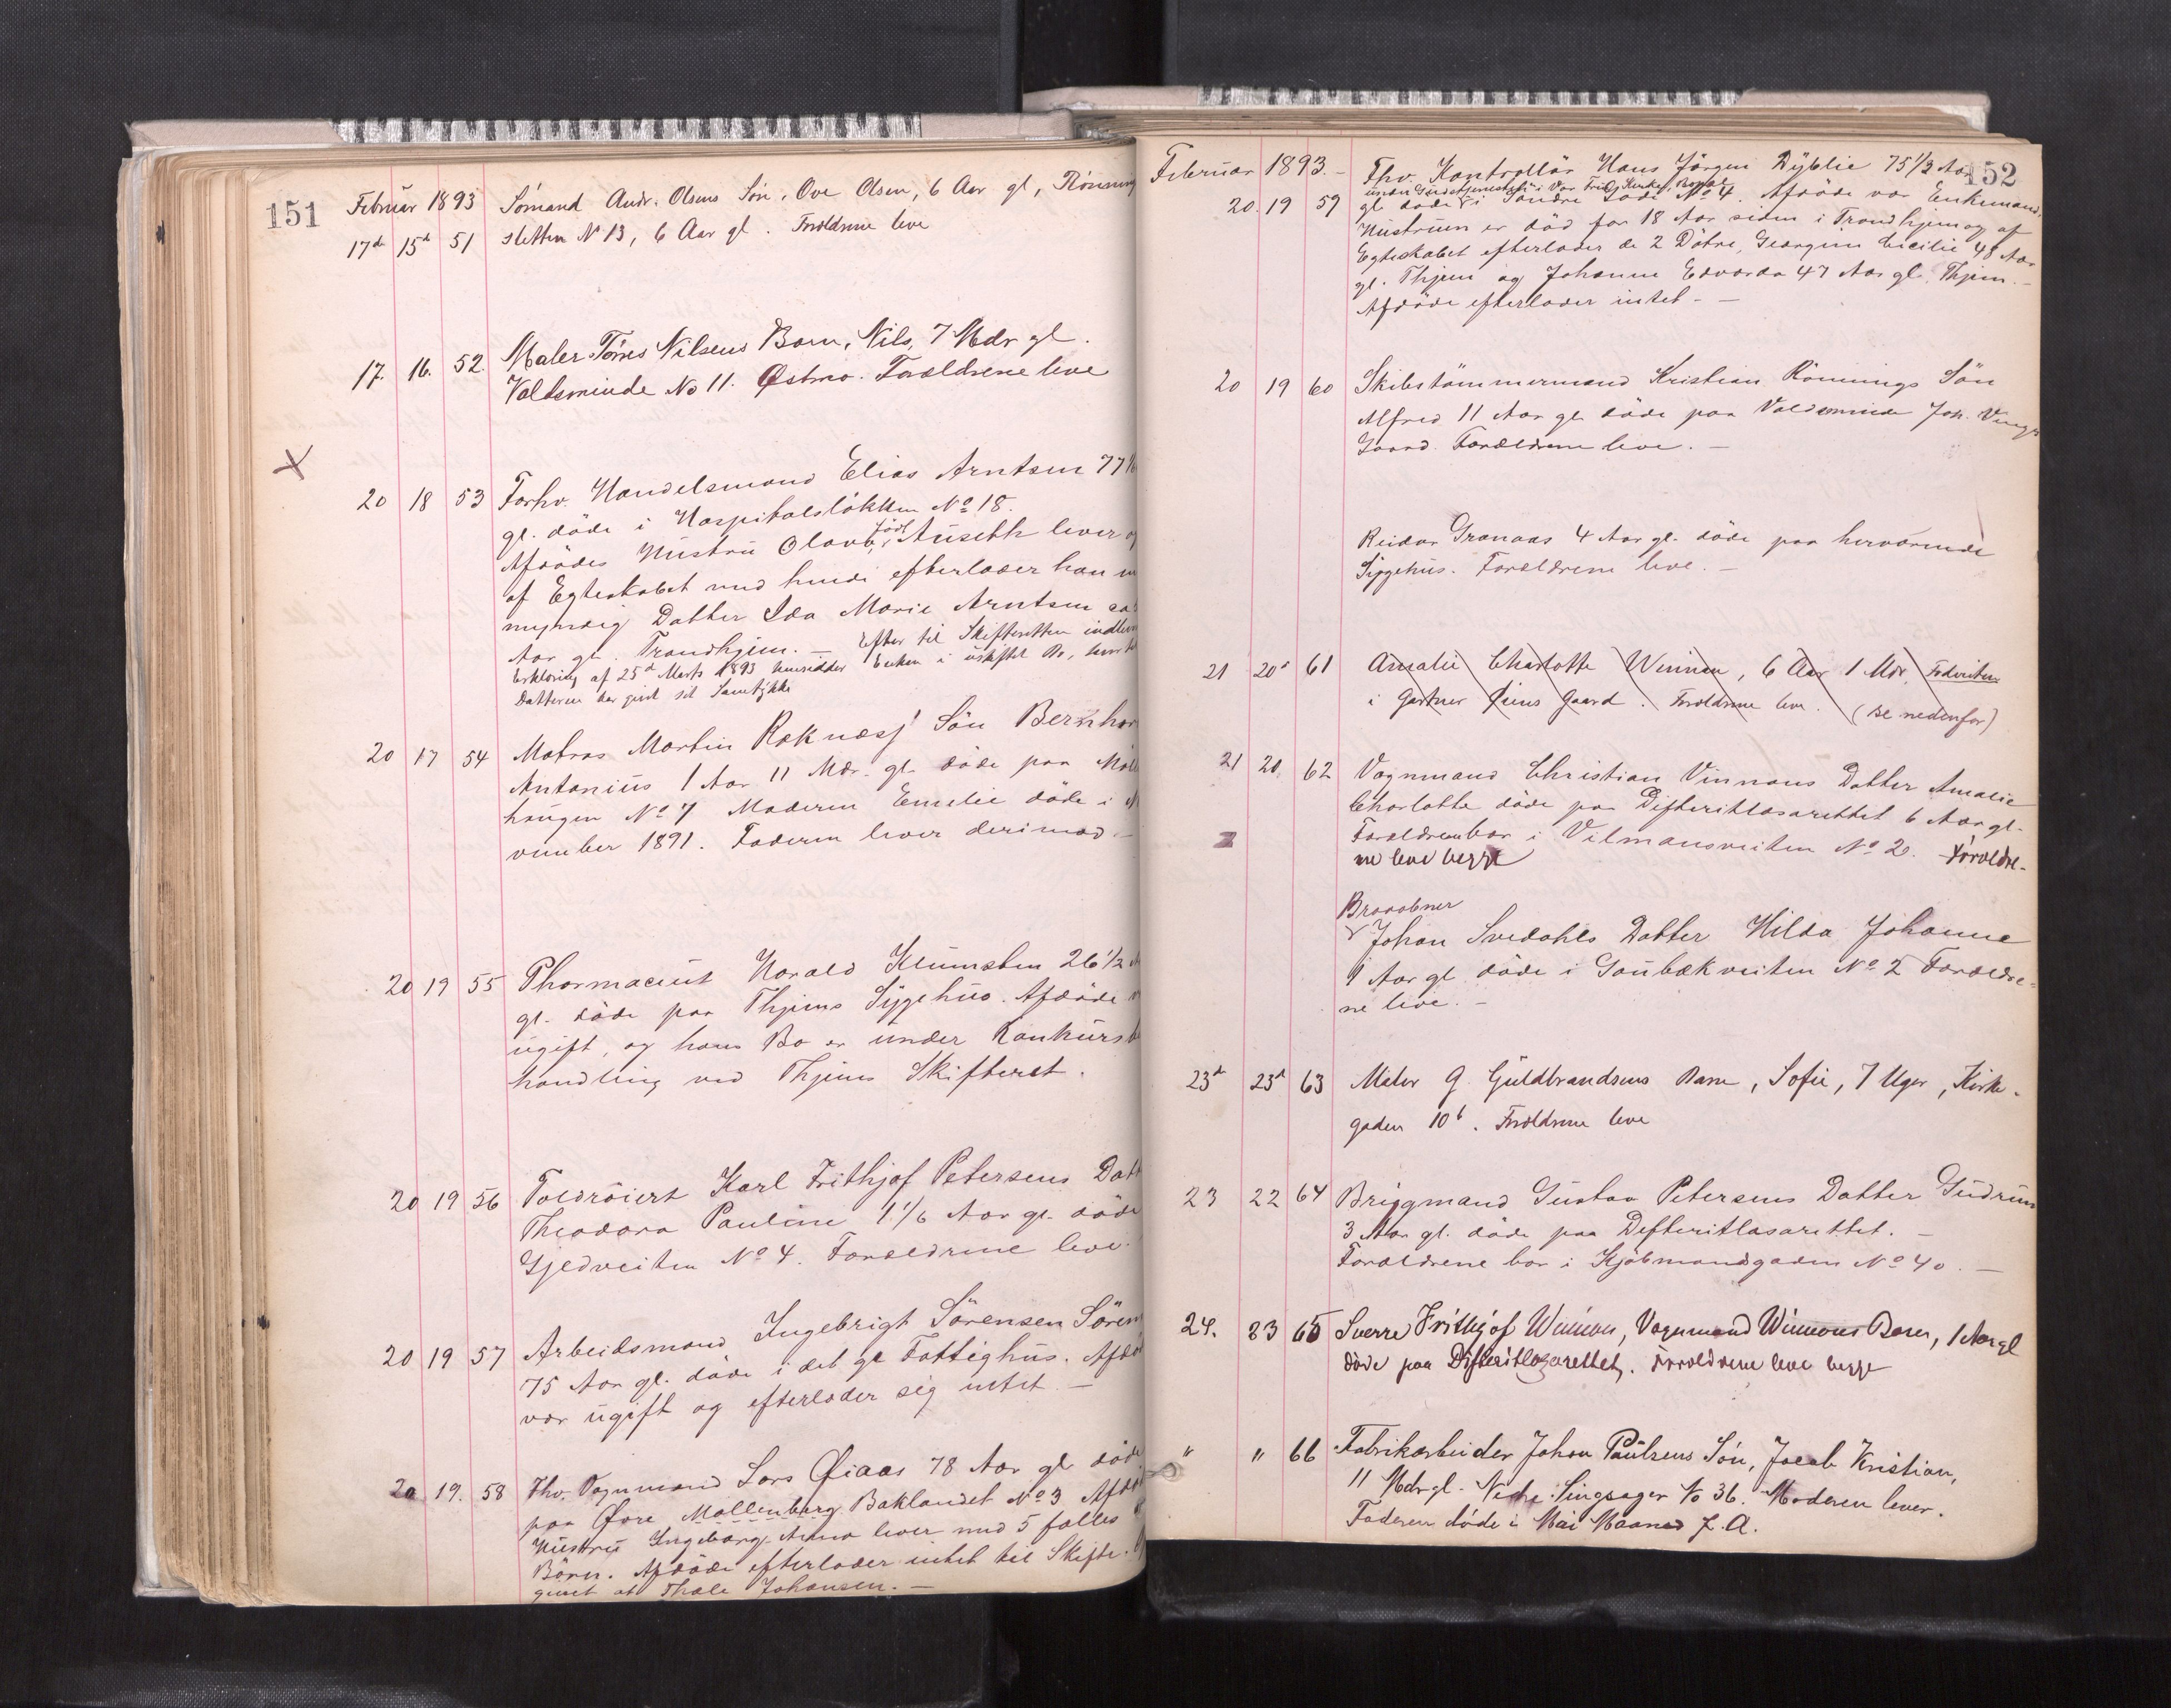 151
Februar 1893
17d 15d 51 Sömand Andr. Olsens Sön, Ove Olsen, 6 Aar gl, Rönning
sletten No 13, 6 Aar gl. Forældrene leve
17. 16. 52. Maler Törres Nilsens Barn, Nils, 7 Mdr gl.
Voldsminde No 11. Østmo. Forældrene leve
20 18 53 Forhv. Handelsmand Elias Arntsen 77
gl. döde i Hospitalslökken No 18.
Afdödes Hustru Olava, född Auseth lever
af Egteskabet med hende efterlader han
myndig Datter Ida Marie Arntsen
Aar gl. Trondhjem. — Efter til Skifteretten
Erklæring af 25d Marts 1893 hensidder Enken i uskiftet Bo, hvortil
Datteren har givet sit Samtykke
20 17 54 Matros Martin Röknæsj Sön
Antonius 1 Aar 11 Mdr. gl. döde paa
haugen No 7 Moderen Emelie döde i
vember 1891. Faderen lever derimod —
20 19 55 Pharmaceut Harald Klümsten 26 1/2
gl. döde paa Thjems Sygehus. Afdöde
ugift, og hans Bo er under Konkurs
handling ved Thjems Skifteret.
20 19 56 Toldröiert Karl Frithjof Petersens
Theodora Pauline 1 1/6 Aar gl. döde
Gjedveiten No 4. Forældrene leve.
20 19 57 Arbeidsmand Ingebrigt Sörensen
75 Aar gl. döde i det gl Fattighus.
var ugift og efterlader sig intet. —
20 19. 58 Fhv. Vognmand Lars Øiaas 78 Aar gl
paa Øvre Møllenberg Baklandet No 3
Hustru Ingeborg Anna lever med 5 fælles
Börn. Afdöde efterlader intet til Skifte.
givet at Thale Johansen. —
152
Februar 1893. — Fhv. Kontrollör Hans Jörgen Dyblie 75 1/2 Aar
under Gudstjenesten i Vor Frue Kirke,
20. 19 59 gl döde i Söndre No 4. Afdöde var Enkemand,
Hustruen er död for 18 Aar siden i Trondhjem og af
Egteskabet efterlader de 2 Dötre, Georgine Cicilie 48 Aar
gl. Thjem og Johanne Edvarda 47 Aar gl. Thjem. —
Afdöde efterlader intet. —
20 19 60 Skibstömmermand Kristian Rönnings Sön
Alfred 11 Aar gl döde paa Voldsminde Joh.
Gaard. Forældrene leve. —
Reidar Granaas 4 Aar gl. döde paa herværende
Sygehus. Forældrene leve. —
21 20d 61 Amalie Charlotte Winnan, 6 Aar 1 Mdr,
i Gartner Gaard. Forældrene leve. (se nedenfor)
21 20. 62 Vognmand Christian Vinnans Datter Amalie
Charlotte döde paa Difteritlasarettet 6 Aar gl.
Forældrene bor i Vilmansveiten No 2. Forældre-
ne leve begge
Brovobner
Johan Svedahls Datter Hilda Johanne
1 Aar gl. döde i Gaubækveiten No 2 Forældre=
ne leve. —
23d 23d 63 Maler G. Guldbrandsens Barn, Sofie, 7 Uger, Kirke-
gaden 10b. Forældrene leve
23 22 64 Bryggmand Gustav Petersens Datter Gudrun
3 Aar gl. döde paa Defteritlasarettet. —
Forældrene bor i Kjöbmandsgaden No 40. —
24. 23 65 Sverre Frithjof Winnan, Vognmand Winnans Barn, 1 Aar gl
döde paa Difteritlazarettet. Forældrene leve begge
" " 66 Fabrikarbeider Johan Paulsens Sön, Jacob Kristian,
11 Mdr gl. Nedre Singsager No 36. Moderen lever.
Faderen döde i Mai Maaned f. A.